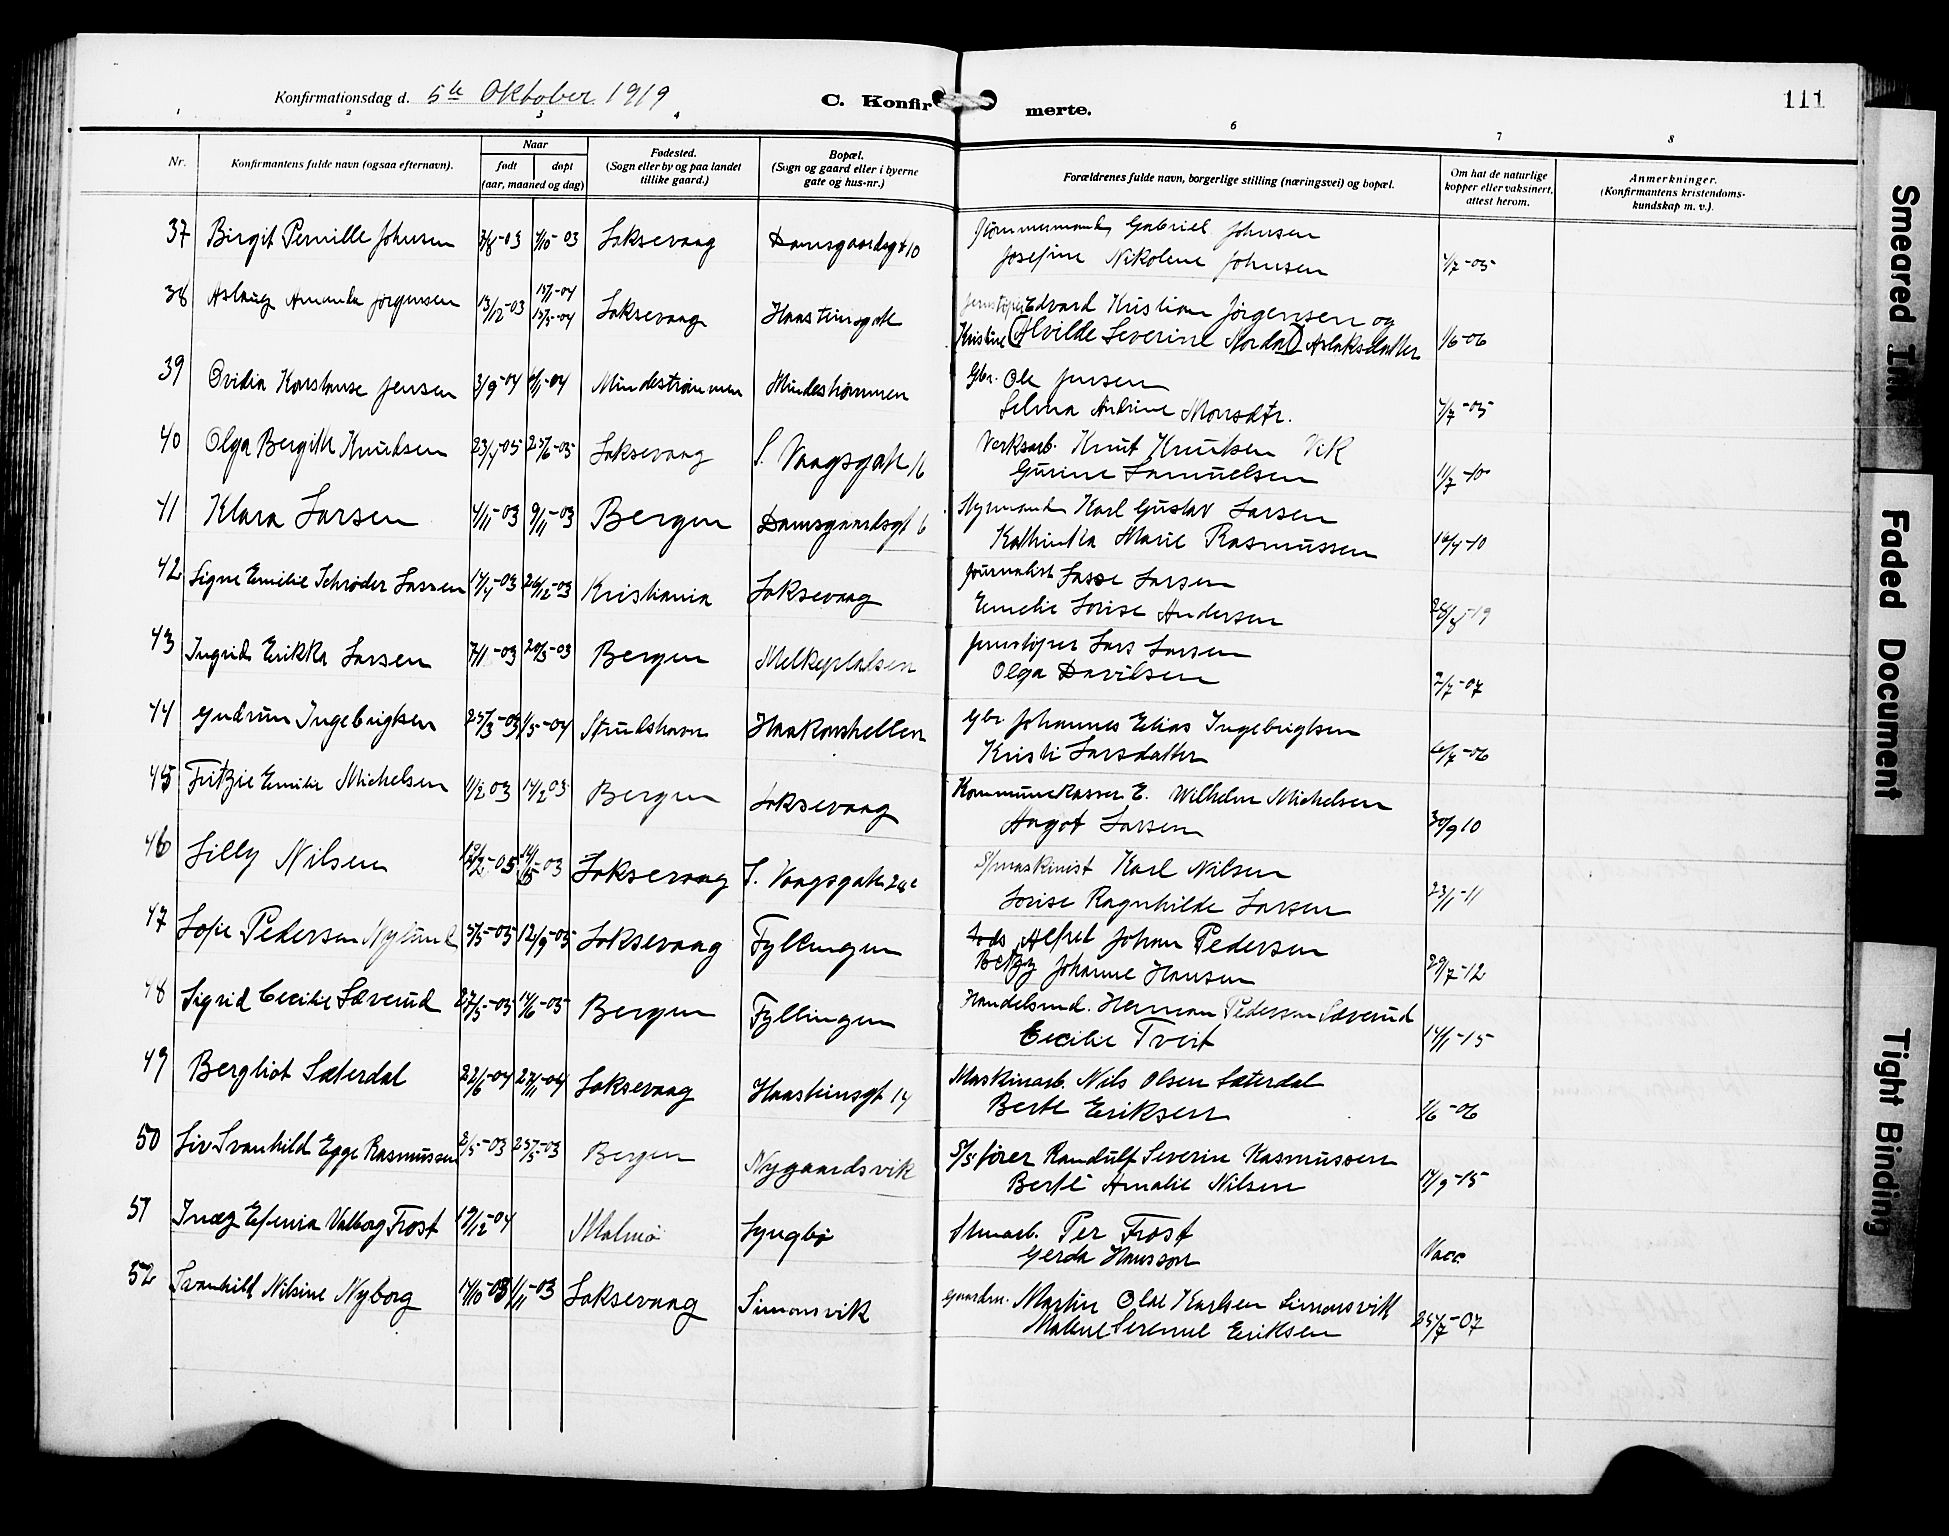 Konfirmationsdag d. 5te Oktober 1919
C. Konfirmerte.
111
1 2 3 4 6 7 8
Nr.
Konfirmantens fulde navn (ogsaa efternavn).
Naar
født døpt
(aar, maaned og dag)
Fødested.
(Sogn eller by og paa landet
tillike gaard.)
Bopæl.
(Sogn og gaard eller i byerne
gate og hus-nr.)
Forældrenes fulde navn, borgerlige stilling (næringsvei) og bopæl.
Om hat de naturlige
kopper eller vaksinert,
attest herom.
Anmerkninger.
(Konfirmantens kristendoms-
kundskap m. v.).
37 Birgit Pernille Johnsen 4/10-03 Laksevaag Damsgaardsgt 10 Gabriel Johnsen
Josefine Nikoline Johnsen 4/7-05
38 Aslaug Amanda Jørgensen 13/12-03 Laksevaag Haasteinsgate Jernstøper Edvard Kristian Jørgensen og
Kristine (Alvilde Severine Nordal) Aslaksdatter 1/6-06
39 Ovidia Konstanse Jensen 3/9-04 Mindestrømmen Mindestrømmen Gbr. Ole Jensen
Selma Andrine Monsdtr. 4/7-05
40 Olga Bergitte Knudsen 23/4-05 25/6-05 Laksevaag S. Vaagsgate 16 Verksarb. Knut Knutsen Vik
Gurine Samuelsen 11/7-10
41 Klara Larsen 4/11-03 9/11-03 Bergen Damsgaardsgt 6 Styrmand Karl Gustav Larsen
Kathinka Marie Rasmussen 16/4-10
42 Signe Emilie Schrøder Lassen 17/4-03 26/12-03 Kristiania Laksevaag Journalist Lasse Larsen
Emelie Lovise Andersen
43 Ingrid Erikka Larsen 7/1-03 20/3-03 Bergen Melkeplatsen Jernstøper Lars Larsen
Olga Davilsen 2/7-07
44 Gudrun Ingebrigtsen 25/3-03 1/5-04 Strudshavn Haakonshellen Gbr. Johannes Elias Ingebrigtsen
Kristi Larsdatter 4/7-06
45 Fritzie Emilie Michelsen 1/2 03 14/2 03 Bergen Laksevaag Kommunekasser E. Wilhelm Michelsen
Hagot Larsen 30/9 10
46 Lilly Nilsen Laksevaag S. Vaagsgate S/maskinist Karl Nilsen
Lovise Ragnhilde Larsen 23/1-11
47 Sofie Pedersen Nylund 12/9-05 Laksevaag Fyllingen Alfred Johan Pedersen
Betzy Johanne Hansen 29/7-12
48 Sigrid Cecilie Sæverud 27/5-05 14/6-05 Bergen Fyllingen Handelsmd. Herman Pedersen Sæverud
Cecilie Tveit 14/1-15
49 Bergliot Sæterdal 22/6-04 27/11-04 Laksevaag Haasteinsgt 14 Maskinarb. Nils Olsen Sæterdal
Berte Eriksen 1/6-06
50 Liv Svanhild Egge Rasmussen 2/5-03 25/5-03 Bergen Nygaardsvik S/S fører Randulf Severin Rasmussen
Berte Amalie Nilsen 17/9-15
51 Inez Efenia Valborg Frost 19/12-04 Malmø Lyngbø Per Frost
Gerda Hansson Vacc
52 Svanhild Nilsine Nyborg 14/10-03 1/11-03 Laksevaag Simonsvik Gaardm. Martin Olai Karlsen Simonsvik
Malene Serenne Eriksen 25/7-07
Smeared Ink
Faded Document
Tight Binding